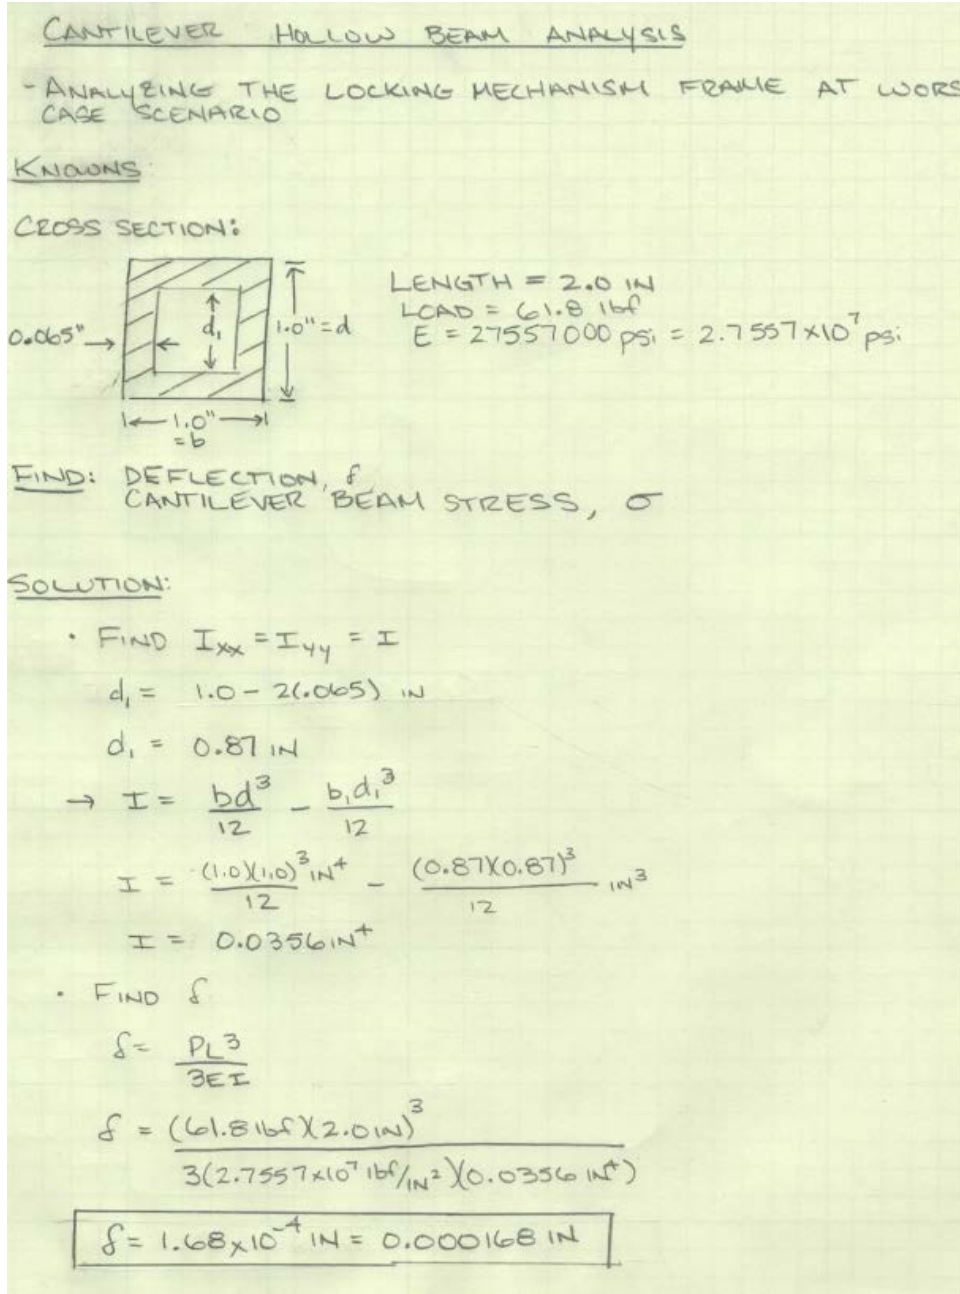 CANTILEVER HOLLOW BEAM ANALYSIS
- ANALYZING THE LOCKING MECHANISM FRAME AT WORS
CASE SCENARIO
KNOWNS:
CROSS SECTION:
LENGTH = 2.0 IN
LOAD = 61.8 lbf
E = 27557000 psi = 2.7557×10⁷ psi
0.065"
d₁
1.0" = d
1.0"
= b
FIND: DEFLECTION, δ
CANTILEVER BEAM STRESS, σ
SOLUTION:
• FIND Ixx = Iyy = I
d₁ = 1.0 - 2(.065) IN
d₁ = 0.87 IN
→ I = bd³/12 - b₁d₁³/12
I = (1.0)(1.0)³IN⁴/12 - (0.87)(0.87)³/12 IN³
I = 0.0356 IN⁴
• FIND δ
δ = PL³/3EI
δ = (61.8 lbf)(2.0 IN)³
3(2.7557×10⁷ lbf/IN²)(0.0356 IN⁴)
δ = 1.68×10⁻⁴ IN = 0.000168 IN